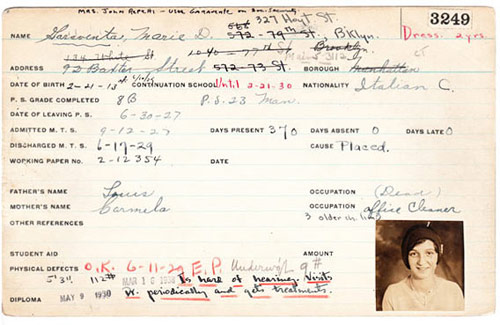 Mrs. John Rapchi - Use
327 Hoyt St.
3249
NAME Marie D. 572-79th St. B'klyn. Dress. 2 yrs.
134 White St 1040-77th St. Brooklyn
Main 3112
ADDRESS 92 Baxter Street 572-73 St. BOROUGH Manhattan
DATE OF BIRTH 2-21-13 CONTINUATION SCHOOL Until 2-21-30 NATIONALITY Italian C.
P. S. GRADE COMPLETED 8B P.S. 23 Man.
DATE OF LEAVING P. S. 6-30-27
ADMITTED M. T. S. 9-12-27 DAYS PRESENT 370 DAYS ABSENT 0 DAYS LATE 0
DISCHARGED M. T. S. 6-17-29 CAUSE Placed.
WORKING PAPER NO. 2-12354 DATE
FATHER'S NAME Louis OCCUPATION (Dead)
MOTHER'S NAME Carmela OCCUPATION Office Cleaner
OTHER REFERENCES 3 older ch.
STUDENT AID AMOUNT
PHYSICAL DEFECTS O.K. 6-11-29 E.P. Underw't 9#
5'3" 112# MAR 1930 Is hard of hearing. Visits
DIPLOMA MAY 9 1930 Dr. periodically and gets treatments.